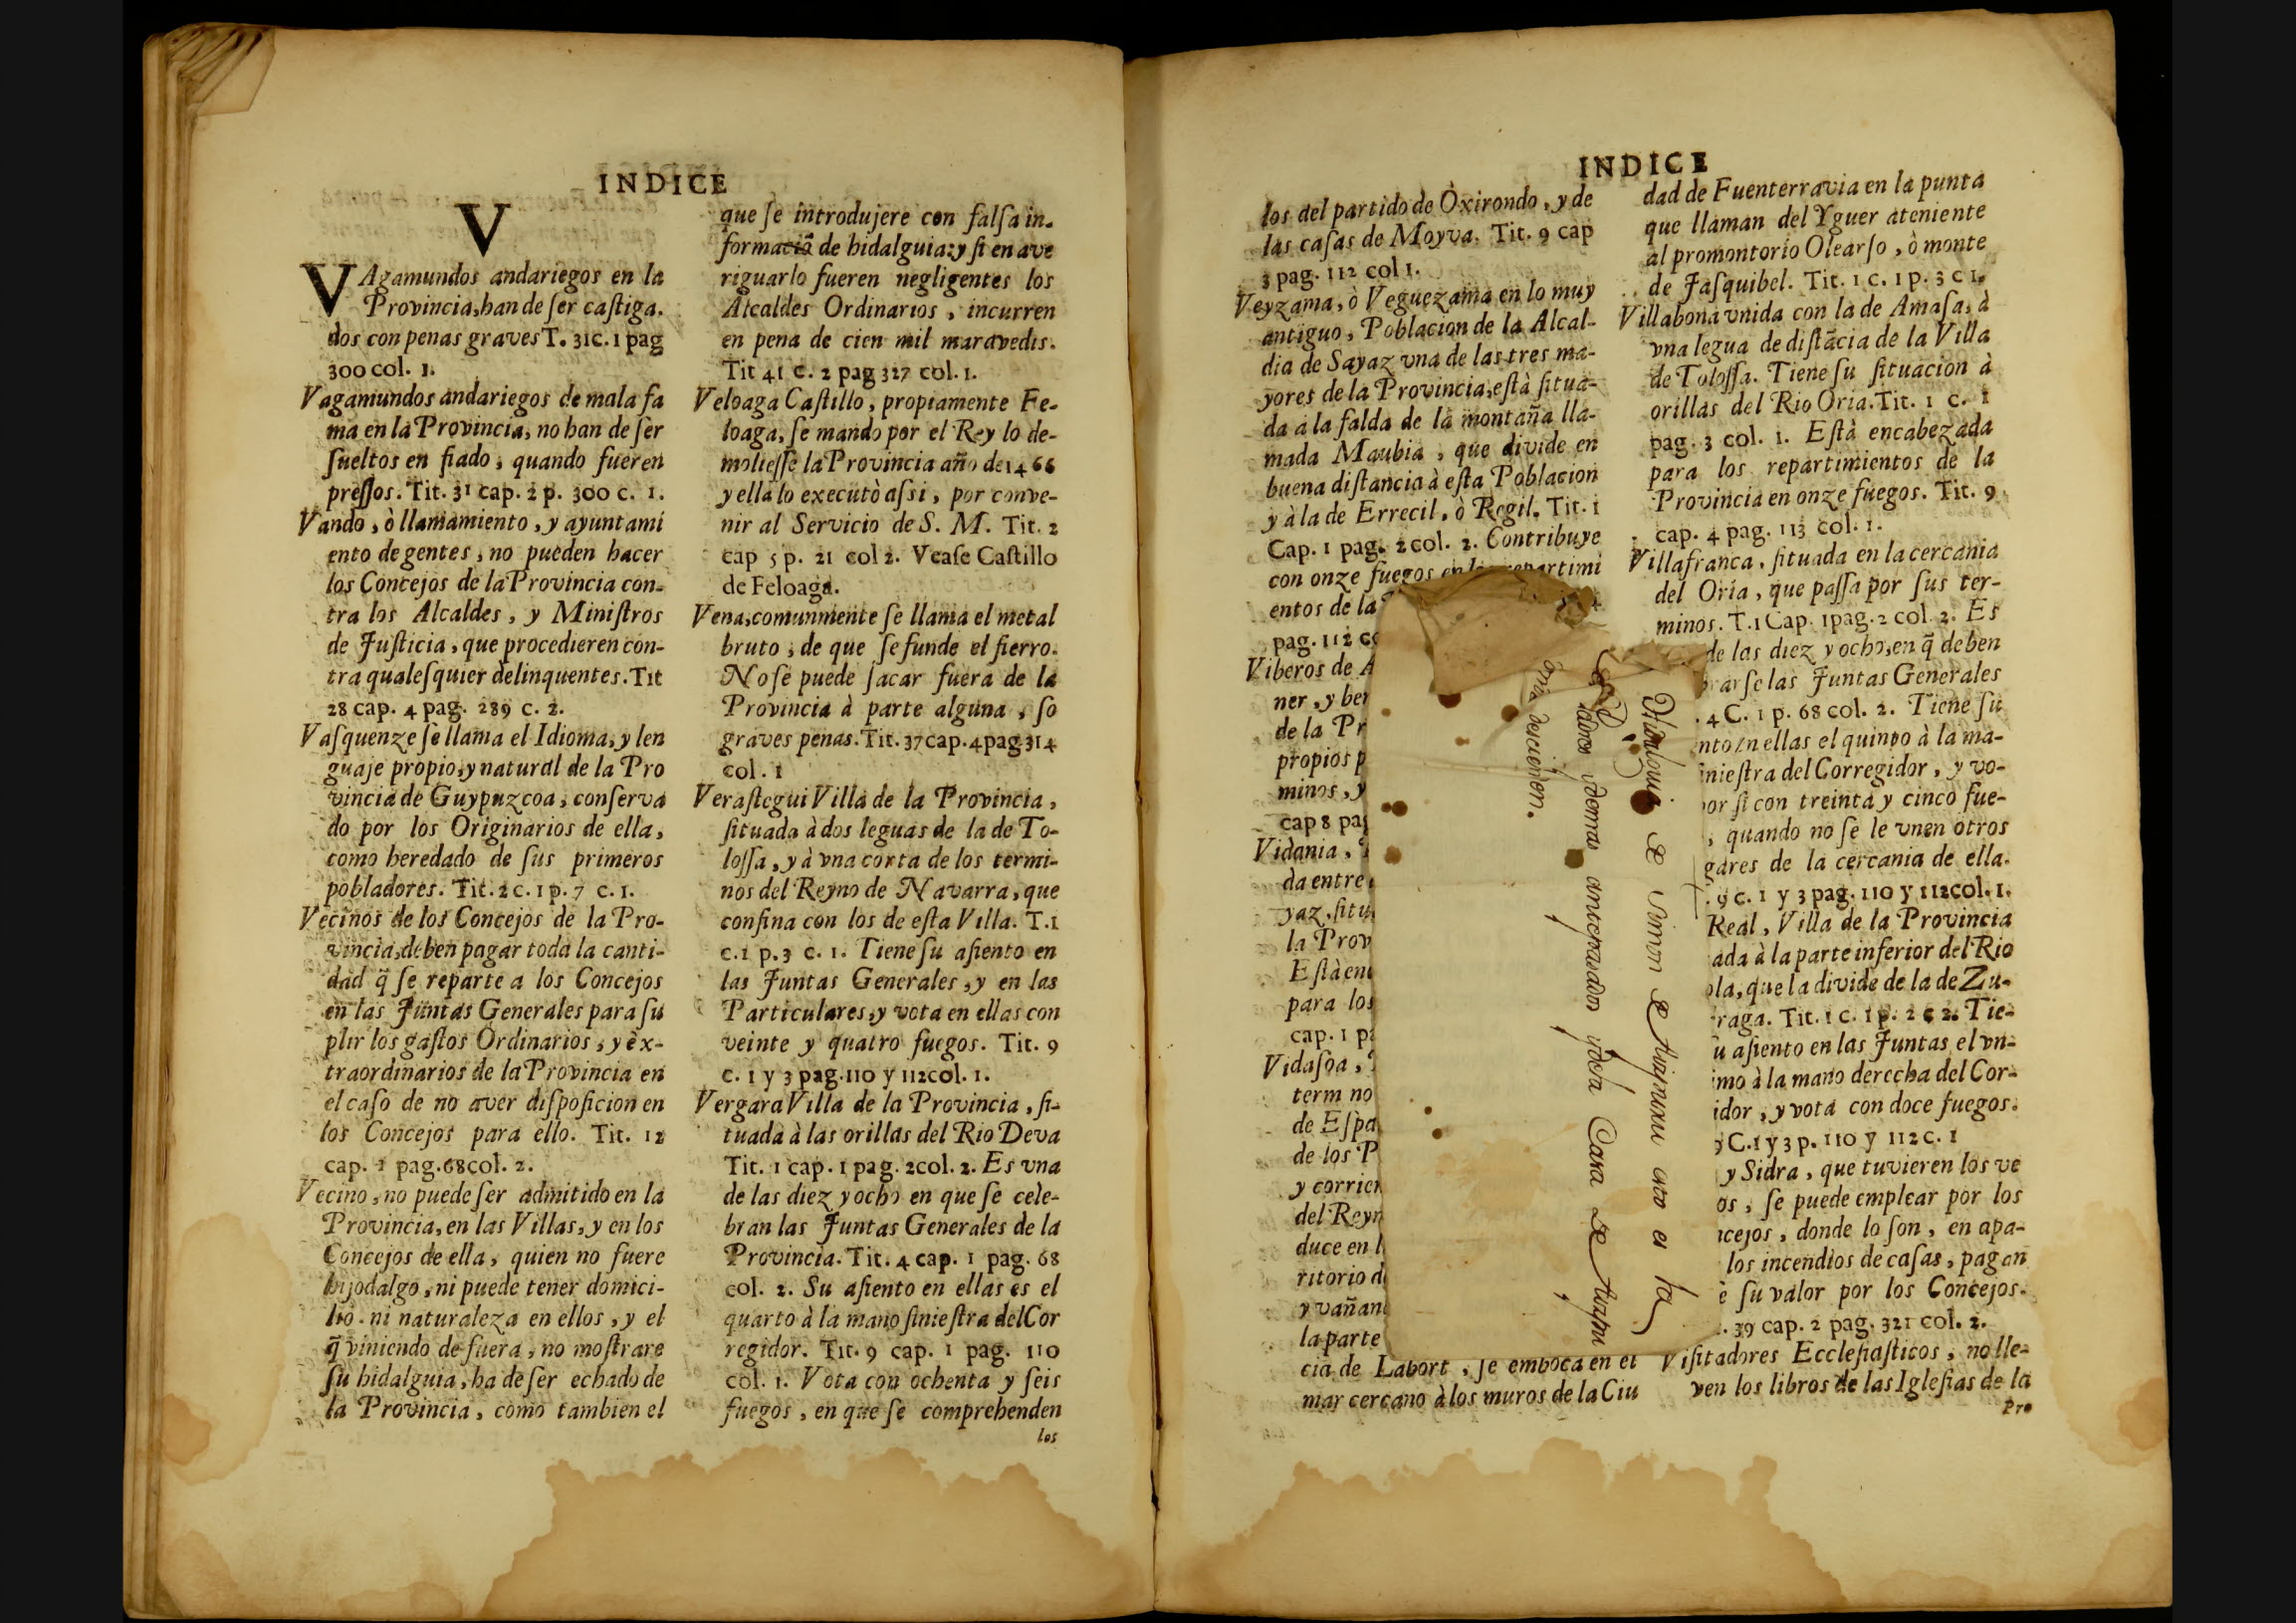 INDICE
V
VAgamundos andariegos en la
Provincia, han de ser castiga.
dos con penas graves T. 31c. 1 pag
300 col. 1.
Vagamundos andariegos de mala fa
ma en la Provincia, no han de ser
sueltos en fiado, quando fueren
pressos. Tit. 31 cap. 2 p. 300 c. 1.
Vando, ò llamamiento, y ayuntami
ento de gentes, no pueden hacer
los Concejos de la Provincia con-
tra los Alcaldes, y Ministros
de Justicia, que procedieren con-
tra qualesquier delinquentes. Tit
28 cap. 4 pag. 289 c. 2.
Vasquenze se llama el Idioma, y len
guaje propio, y natural de la Pro
vincia de Guypuzcoa, conserva
do por los Originarios de ella,
como heredado de sus primeros
pobladores. Tit. 2 c. 1 p. 7 c. 1.
Vecinos de los Concejos de la Pro-
vincia, deben pagar toda la canti-
dad q̃ se reparte a los Concejos
en las Juntas Generales para su
plir los gastos Ordinarios, y èx-
traordinarios de la Provincia en
el caso de no aver disposicion en
los Concejos para ello. Tit. 12
cap. 1 pag. 68 col. 2.
Vecino, no puede ser admitido en la
Provincia, en las Villas, y en los
Concejos de ella, quien no fuere
hijodalgo, ni puede tener domici-
lio. ni naturaleza en ellos, y el
q̃ viniendo de fuera, no mostrare
su hidalguia, ha de ser echado de
la Provincia, como tambien el
que se introdujere con falsa in.
formaciõ de hidalguia: y si en ave
riguarlo fueren negligentes los
Alcaldes Ordinarios, incurren
en pena de cien mil maravedis.
Tit 41 c. 2 pag 327 col. 1.
Veloaga Castillo, propiamente Fe-
loaga, se mandò por el Rey lo de-
moliesse la Provincia año de 1466
y ella lo executò assi, por conve-
nir al Servicio de S. M. Tit. 2
cap 5 p. 21 col 2. Vease Castillo
de Feloaga.
Vena, comunmente se llama el metal
bruto, de que se funde el fierro.
No se puede sacar fuera de la
Provincia à parte alguna, so
graves penas. Tit. 37 cap. 4 pag. 314
col. 1
Verastegui Villa de la Provincia,
situada à dos leguas de la de To-
lossa, y à vna corta de los termi-
nos del Reyno de Navarra, que
confina con los de esta Villa. T. 1
c. 1 p. 3 c. 1. Tiene su asiento en
las Juntas Generales, y en las
Particulares, y vota en ellas con
veinte y quatro fuegos. Tit. 9
c. 1 y 3 pag. 110 y 112 col. 1.
Vergara Villa de la Provincia, si-
tuada à las orillas del Rio Deva
Tit. 1 cap. 1 pag. 2 col. 2. Es vna
de las diez y ocho en que se cele-
bran las Juntas Generales de la
Provincia. Tit. 4 cap. 1 pag. 68
col. 2. Su asiento en ellas es el
quarto à la mano siniestra del Cor
regidor. Tit. 9 cap. 1 pag. 110
col. 1. Vota con ochenta y seis
fuegos, en que se comprehenden
los
INDICE
los del partido de Oxirondo, y de
las casas de Moyva. Tit. 9 cap
3 pag. 112 col 1.
Veyzama, ò Veguezama en lo muy
antiguo, Poblacion de la Alcal-
dia de Sayaz vna de las tres ma-
yores de la Provincia, està situa-
da a la falda de la montaña lla-
mada Maubia, que divide en
buena distancia à esta Poblacion
y à la de Errecil, ò Regil. Tit. 1
Cap. 1 pag. 2 col. 2. Contribuye
con onze fuegos en los repartimi
entos de la
pag. 112 co
Viberos de A
ner, y ber
de la Pr
propios p
minos, y
cap 8 pag
Vidania,
da entre
yaz, situ
la Prov
Està en
para los
cap. 1 pa
Vidasoa,
term no
de Espa
de los P
y corrien
del Reyn
duce en l
ritorio d
y vañan
la parte
cia de Labort, se emboca en el
mar cercano à los muros de la Ciu
dad de Fuenterravia en la punta
que llaman del Yguer ateniente
al promontorio Olearso, ò monte
de Jasquibel. Tit. 1 c. 1 p. 3 c 1.
Villabona vnida con la de Amasa, à
vna legua de distãcia de la Villa
de Tolossa. Tiene su situacion à
orillas del Rio Oria. Tit. 1 c. 1
pag. 3 col. 1. Està encabezada
para los repartimientos de la
Provincia en onze fuegos. Tit. 9
cap. 4 pag. 113 col. 1.
Villafranca, situada en la cercania
del Oria, que passa por sus ter-
minos. T. 1 Cap. 1 pag. 2 col. 2. Es
de las diez y ocho, en q̃ deben
rarse las Juntas Generales
. 4 C. 1 p. 68 col. 2. Tiene su
nto en ellas el quinto à la ma-
iniestra del Corregidor, y vo-
or si con treinta y cinco fue-
, quando no se le vnen otros
gares de la cercania de ella.
. 9 c. 1 y 3 pag. 110 y 112 col. 1.
Real, Villa de la Provincia
ada à la parte inferior del Rio
ola, que la divide de la de Zu-
raga. Tit. 1 c. 1 p. 2 c 2. Tie-
u asiento en las Juntas el vn-
imo à la mano derecha del Cor-
idor, y vota con doce fuegos.
9 C. 1 y 3 p. 110 y 112 c. 1
y Sidra, que tuvieren los ve
os, se puede emplear por los
ncejos, donde lo son, en apa-
los incendios de casas, pagan
è su valor por los Concejos.
. 39 cap. 2 pag. 321 col. 2.
Visitadores Ecclesiasticos, no lle-
ven los libros de las Iglesias de la
Pro
de
antepasados
Casa de